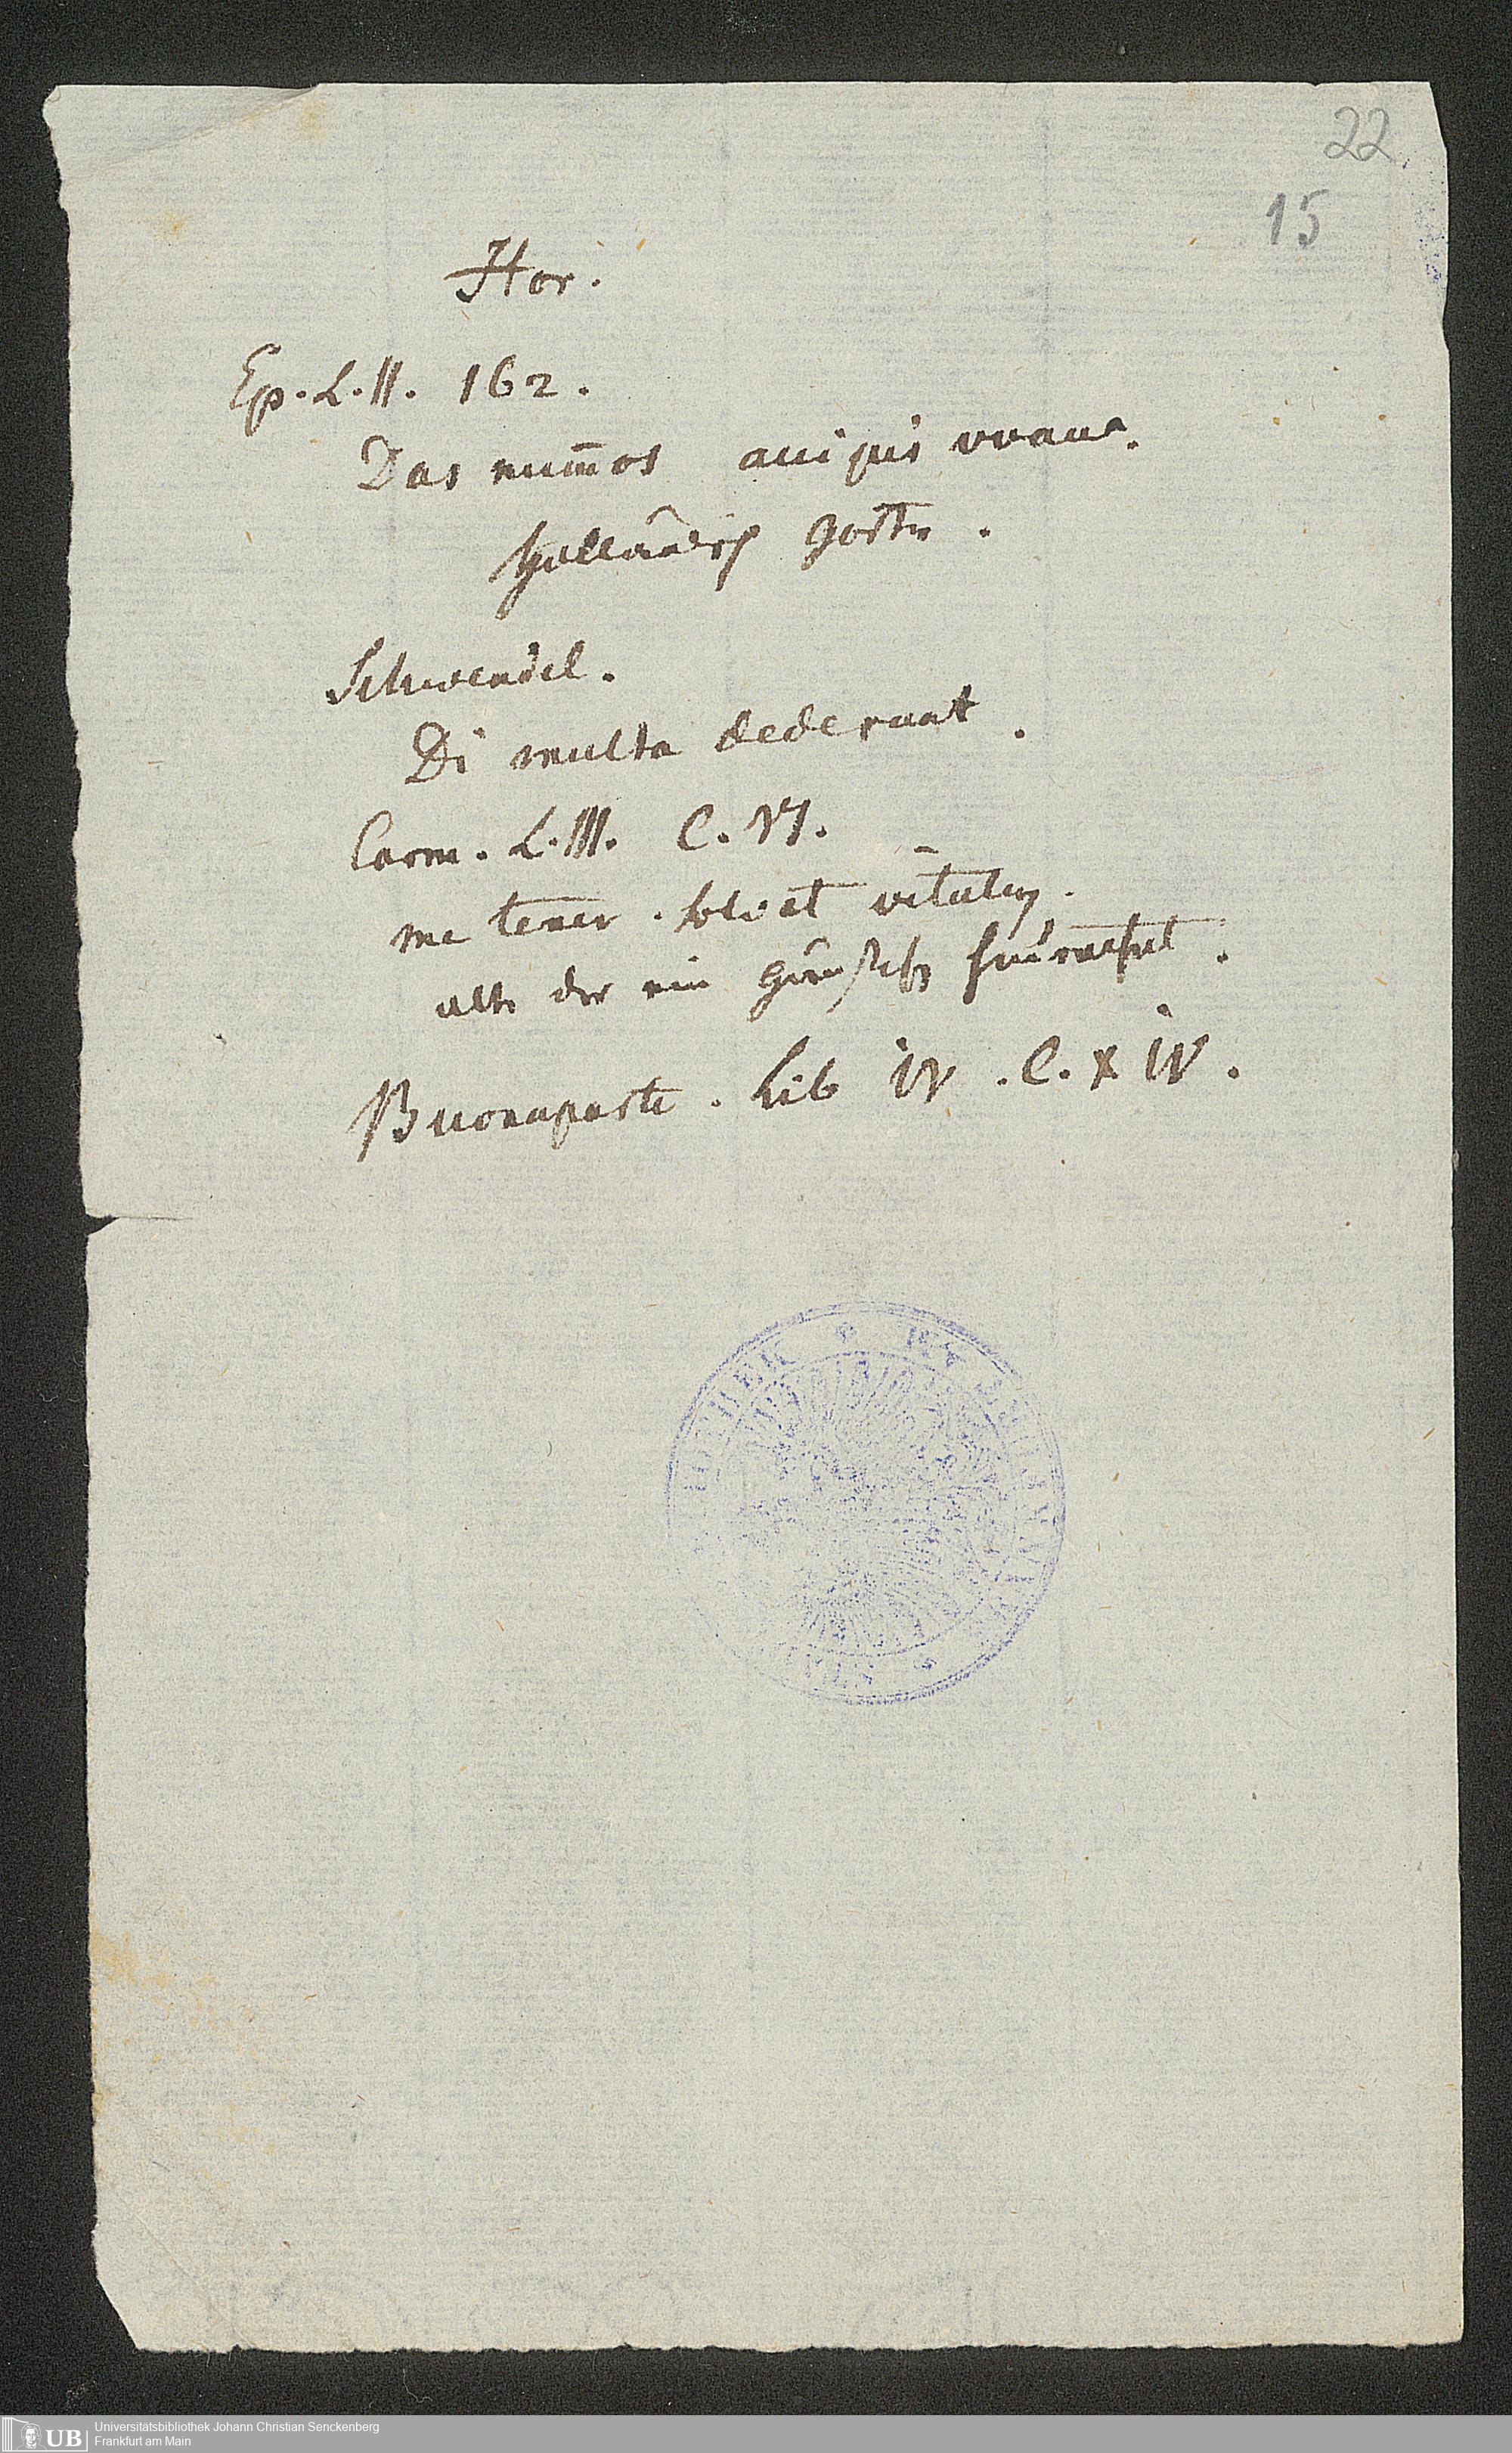 22
15
Hor.
Ep. L. II. 162.
Das num̅os accipis uvam.
Holländisch
Schwendel.
Di multa dederunt.
Carm. L. III. C. VI.
me tener solvet vitulus.
alte der ein
Buonaparte. Lib IV. C. XIV.
UB
Universitätsbibliothek Johann Christian Senckenberg
Frankfurt am Main